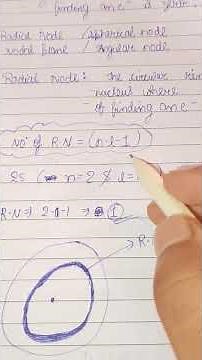 "finding one
Radial Node / Spherical node
Nodal plane / Angular node
Radial Node: the circular
nucleus where
of finding one
No of R.N = (n-l-1)
2s n=2 & l=
R.N => 2-0-1 => 1
R.